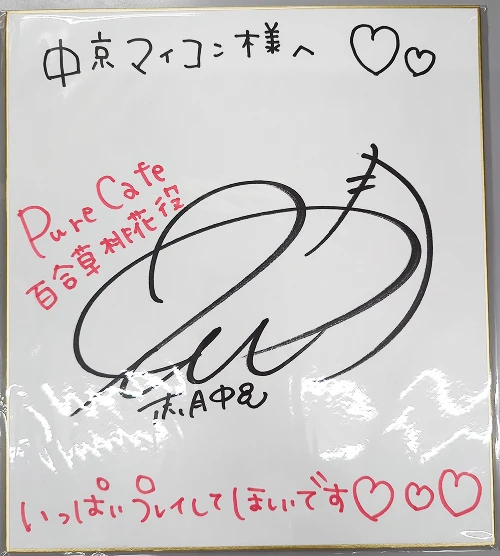 中京マイコン様へ♡♡
Pure Cafe
百合草桃花役
いっぱいプレイしてほしいです♡♡♡